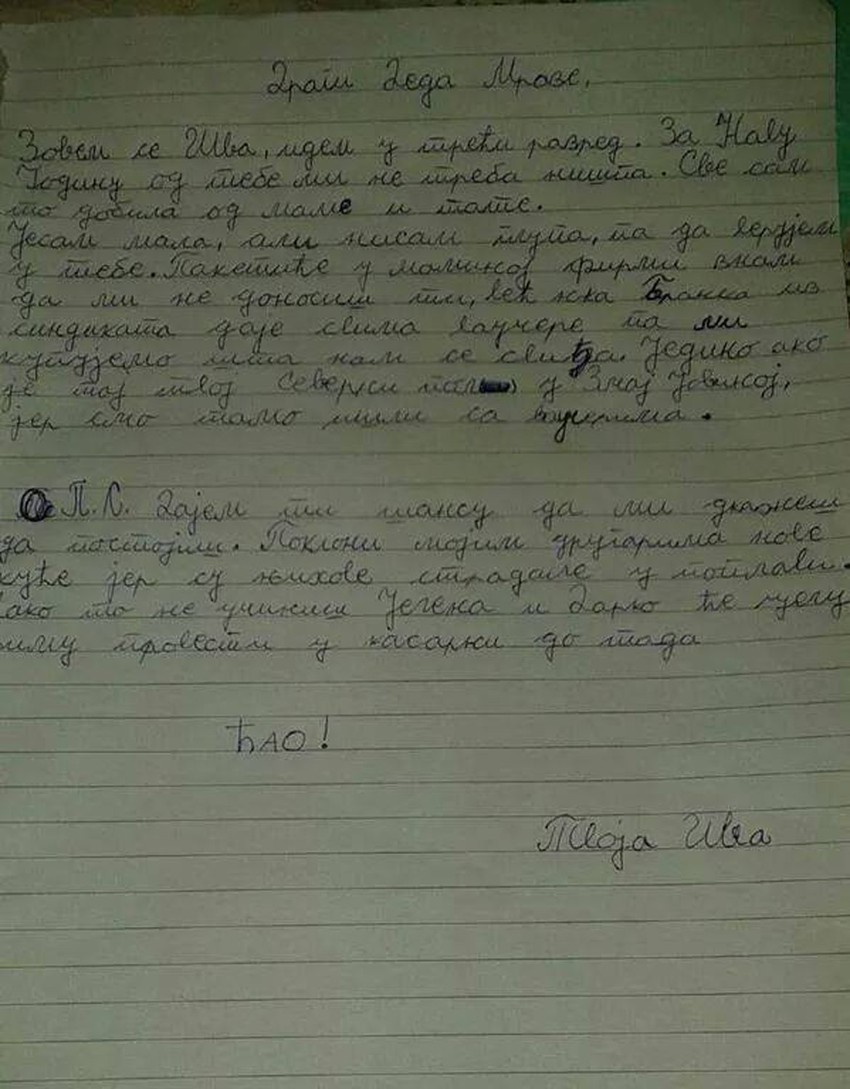 Драги Деда Мразе,
Зовем се Ива, идем у трећи разред. За Нову
Годину од тебе ми не треба ништа. Све сам
то добила од маме и тате.
Јесам мала, али нисам глупа, па да верујем
у тебе. Пакетиће у маминој фирми знам
да ми не доносиш ти, већ тека Бранка из
синдиката даје свима ваучере па ми
купујемо шта нам се свиђа. Једино ако
је тај твој Северни пол у Змај Јовиној,
јер смо тамо ишли са ваучерима.
П.С. Дајем ти шансу да ми докажеш
да постојиш. Поклони мојим другарима нове
куће јер су њихове страдале у поплави.
ако то не учиниш Јелена и Дарко ће целу
зиму провести у касарни до тада
ЋАО!
Твоја Ива